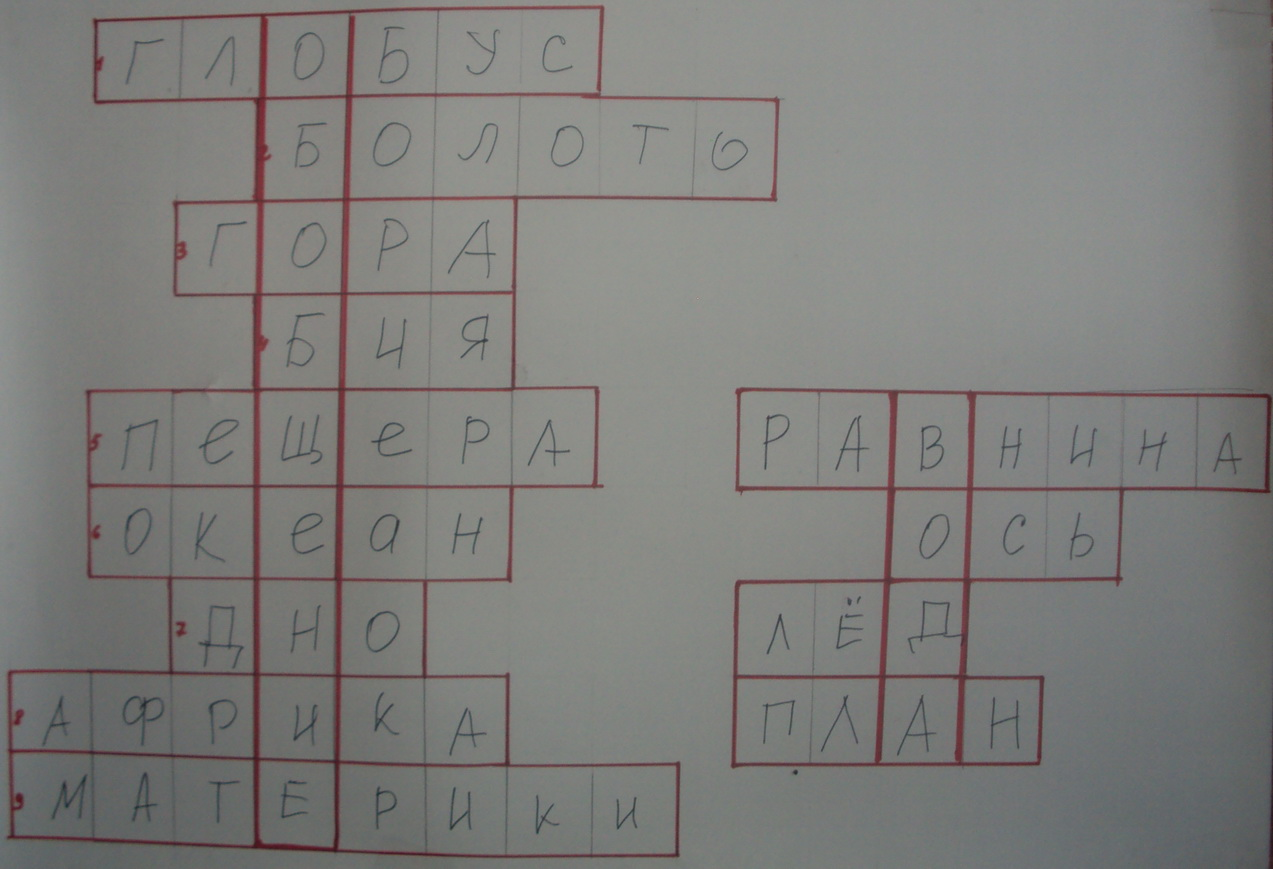 1 ГЛОБУС
2 БОЛОТО
3 ГОРА
4 БИЯ
5 ПеЩеРА
6 ОКеаН
7 ДНО
8 АФРИКА
9 МАТЕРИКИ
РАВНИНА
ОСЬ
ЛЁД
ПЛАН